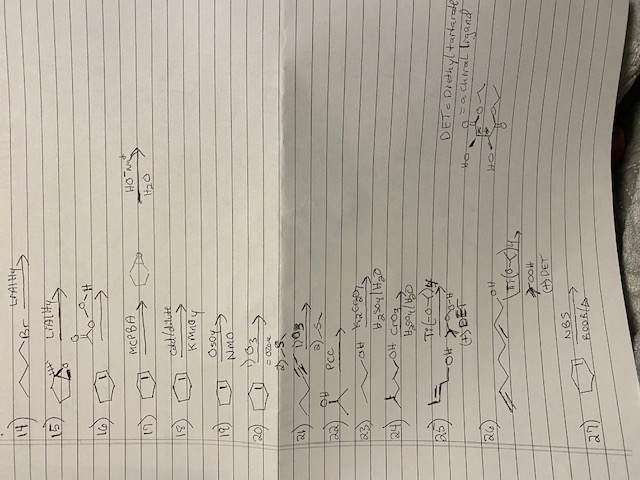 14) Br LiAlH4
15) O LiAlH4
16) O O-O-H
17) MCPBA HO⁻Na⁺ H2O
18) cold/dilute KMnO4
19) OsO4 NMO
20) 1) O3 2) -S-
21) 1) O3 2) -S-
22) OH PCC
23) OH K2Cr2O7 H2SO4/H2O
24) OH CrO3 H2SO4/H2O
25) OH Ti(-O-)4 O-O-H (+)DET
DET = Diethyl tartarate
= a chiral ligand
HO O O
HO O O
26) OH Ti(-O-)4 OOH (+)DET
27) NBS ROOR/Δ